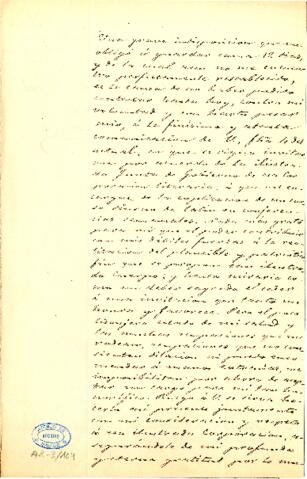 Una grave indisposicion que me
obligó á guardar cama 12 dias,
y de la cual aun no me encuen-
tro perfectamente restablecido,
es la causa de no haber podido
contestar hasta hoy, contra mi
voluntad y con harta pena
mia, á la finísima y atenta
comunicacion de V. fha 10 del
actual, en que se sirve invitar-
me por acuerdo de la ilustra-
da Junta de Gobierno de
á que me en-
cargue de la esplicacion de un cur-
so de latin en conferen-
cias semanales. Nada mas grato
para mi que el poder contribuir
con mis débiles fuerzas á la rea-
lizacion del plausible y patriótico
fin que se propone tan ilustra-
da
mo un deber sagrado el ceder
á una invitacion que tanto me
honra y favorece. Pero el poco
lisonjero estado de mi salud y
las muchas ocupaciones que me
rodean, ocupaciones que no con-
sienten dilacion ni puedo enco-
mendar á manos
imposibilitan por ahora de acep-
tar un cargo para mi tan hon-
orífico. Ruego á V. se sirva ha-
cerlo asi presente juntamente
con mi consideracion y respeto
á esa ilustrada Corporacion, a-
segurándole de mi profunda
y eterna gratitud por la